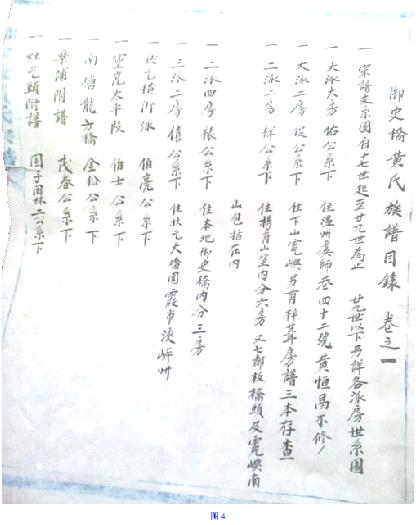 御史橋黃氏族譜目錄 卷之一
一 宗譜支宗圖自十七世起至廿九世爲止 廿九世以下另詳各派房世系圖
一 大派大房佑公系下 住溫州虞師巷四十二號黃恒昌不修
一 大派二房俊公系下 住下山霓嶼 另有 房譜三本存查
一 二派二房祥公系下 住 山 內分六房 又七都板橋頭及霓嶼南
山包括在內
一 二派四房根公系下 住本地御史橋內分三房
一 三派二房僖公系下 住狀元大 霞市
一 狀元橋街派 伯亮公系下
一 霓嶼太平段 伯士公系下
一 南塘龍方橋 金 公系下
一 葉浦附譜 茂春公系下
一 頭附譜 公系下
图 4